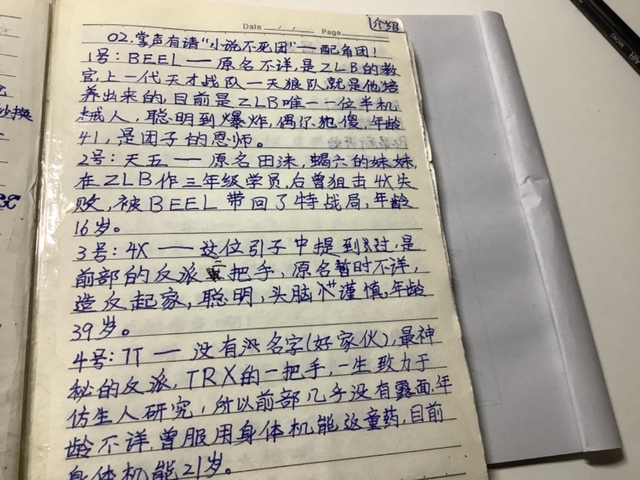 介绍
Date / / Page
02.掌声有请“小说不死团”—配角团!
1号:BEEL——原名不详是ZLB的教
官上一代天才战队一天狼队就是他培
养出来的,目前是ZLB唯一一位半机
械人,聪明到爆炸,偶尔犯傻,年龄
41,是因子的恩师。
2号:天五——原名田沫,蝎六的妹妹,
在ZLB作三年级学员,后曾狙击4X失
败,被BEEL带回了特战局,年龄
16岁。
3号:4X——这位引子中提到过,是
前部的反派 把手,原名暂时不详,
造反起家,聪明,头脑 谨慎,年龄
39岁。
4号:TT—没有 名字(好家伙),最神
秘的反派,TRX的一把手,一生致力于
仿生人研究,所以前部几乎没有露面,年
龄不详,曾服用身体机能返童药,目前
身体机能21岁。